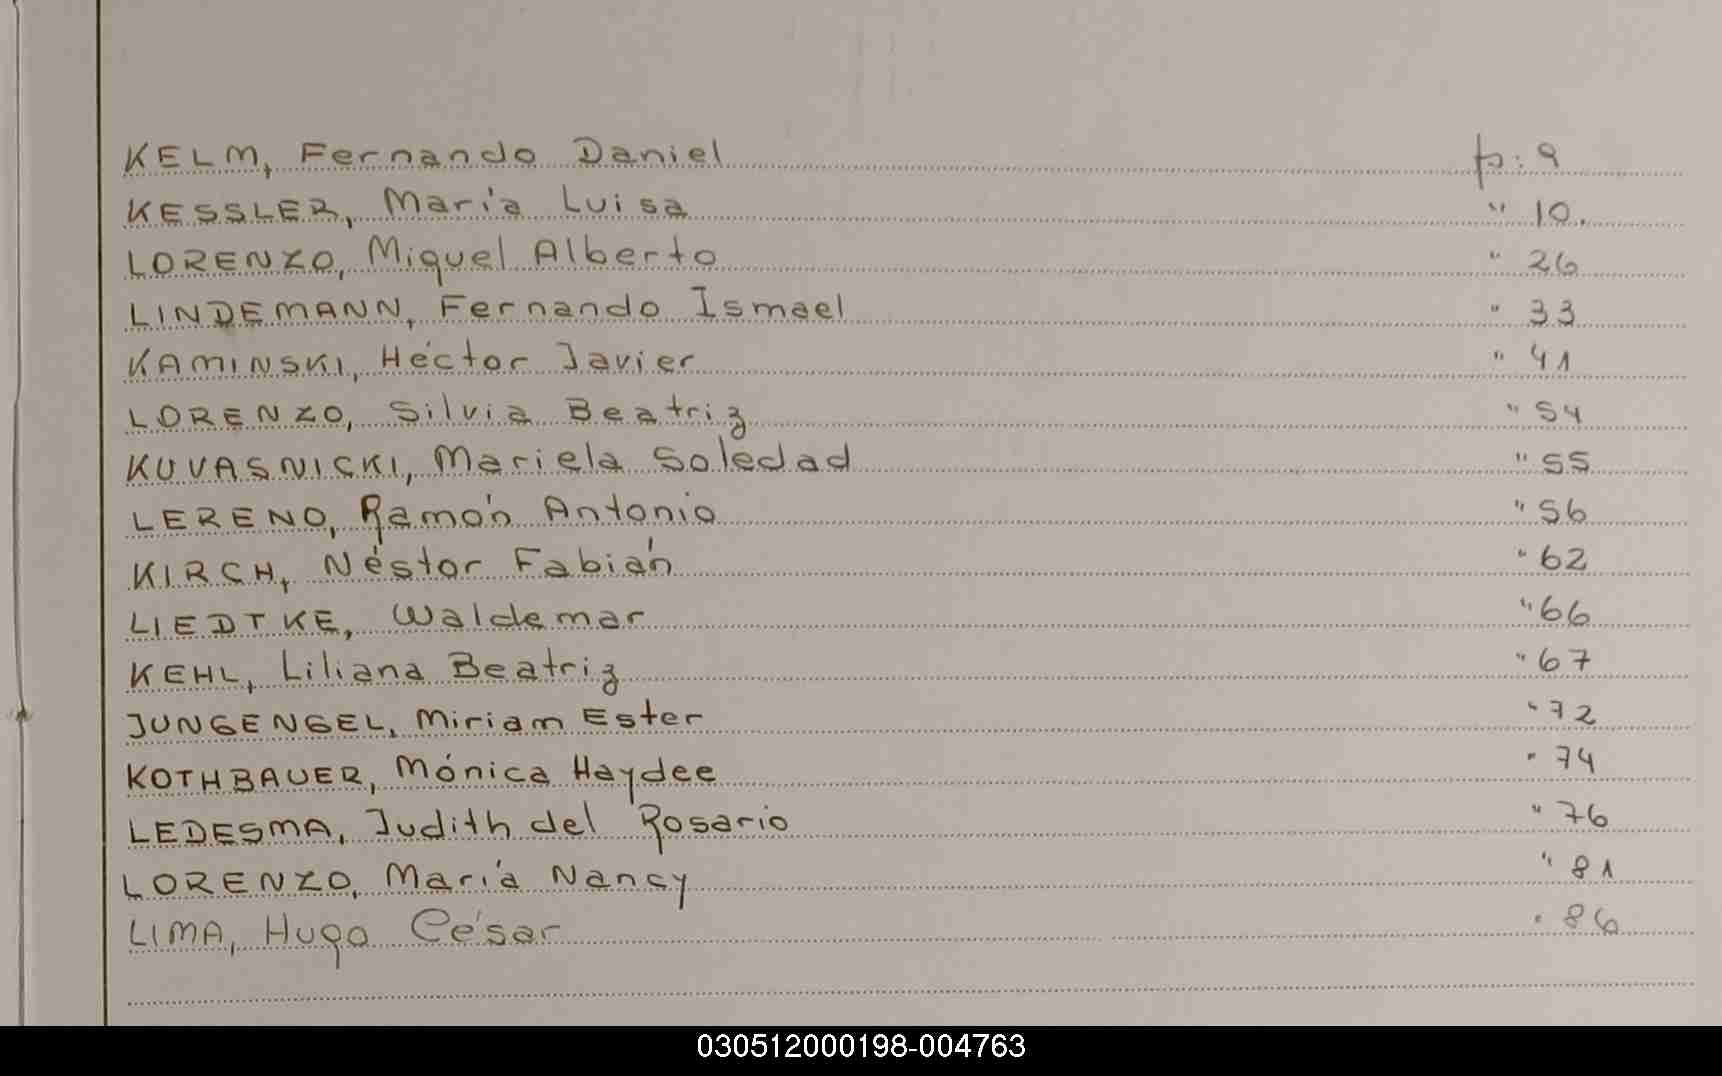 KELM, Fernando Daniel p: 9
KESSLER, María Luisa " 10.
LORENZO, Miguel Alberto " 26
LINDEMANN, Fernando Ismael " 33
KAMINSKI, Héctor Javier " 41
LORENZO, Silvia Beatriz " 54
KUVASNICKI, Mariela Soledad " 55
LERENO, Ramón Antonio " 56
KIRCH, Néstor Fabián " 62
LIEDTKE, Waldemar " 66
KEHL, Liliana Beatriz " 67
JUNGENGEL, Miriam Ester " 72
KOTHBAUER, Mónica Haydee " 74
LEDESMA, Judith del Rosario " 76
LORENZO, María Nancy " 81
LIMA, Hugo César " 86
030512000198-004763